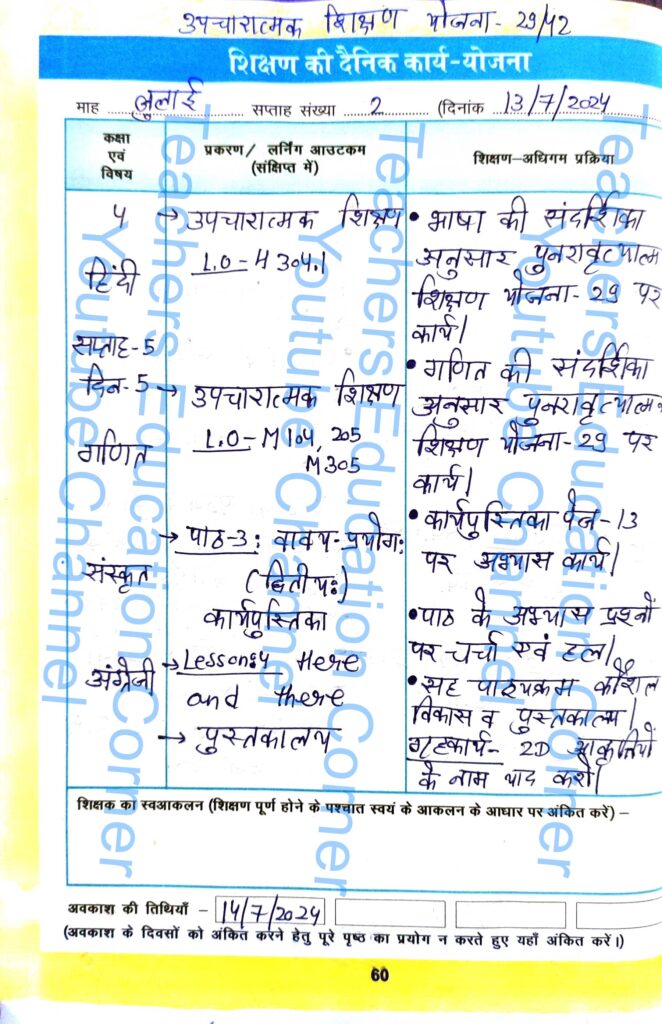 उपचारात्मक शिक्षण योजना- 29/42
शिक्षण की दैनिक कार्य-योजना
माह जुलाई सप्ताह संख्या 2 (दिनांक 13/7/2024
कक्षा
एवं
विषय
प्रकरण/ लर्निंग आउटकम
(संक्षिप्त में)
शिक्षण-अधिगम प्रक्रिया
4
हिंदी
सप्ताह-5
दिन-5
गणित
संस्कृत
अंग्रेजी
→ उपचारात्मक शिक्षण
L.O-H 304.1
→ उपचारात्मक शिक्षण
L.O-M104, 205
M305
→ पाठ-3: वाक्य-प्रयोग:
(द्वितीय:)
कार्यपुस्तिका
→ Lesson:4 Here
and there
→ पुस्तकालय
• भाषा की संदर्शिका
अनुसार पुनरावृत्यात्म
शिक्षण योजना- 29 पर
कार्य।
• गणित की संदर्शिका
अनुसार पुनरावृत्यात्म
शिक्षण योजना-29 पर
कार्य।
• कार्यपुस्तिका पेज-13
पर अभ्यास कार्य।
• पाठ के अभ्यास प्रश्नों
पर चर्चा एवं हल।
• सह पाठ्यक्रम कौशल
विकास व पुस्तकालय।
गृहकार्य- 2D आकृतियों
के नाम याद करो।
शिक्षक का स्वआकलन (शिक्षण पूर्ण होने के पश्चात स्वयं के आकलन के आधार पर अंकित करें) –
अवकाश की तिथियाँ – 14/7/2024
(अवकाश के दिवसों को अंकित करने हेतु पूरे पृष्ठ का प्रयोग न करते हुए यहाँ अंकित करें।)
60
Teachers Education Corner
Youtube Channel
Teachers Education Corner
Youtube Channel
Teachers Education Corner
Youtube Channel